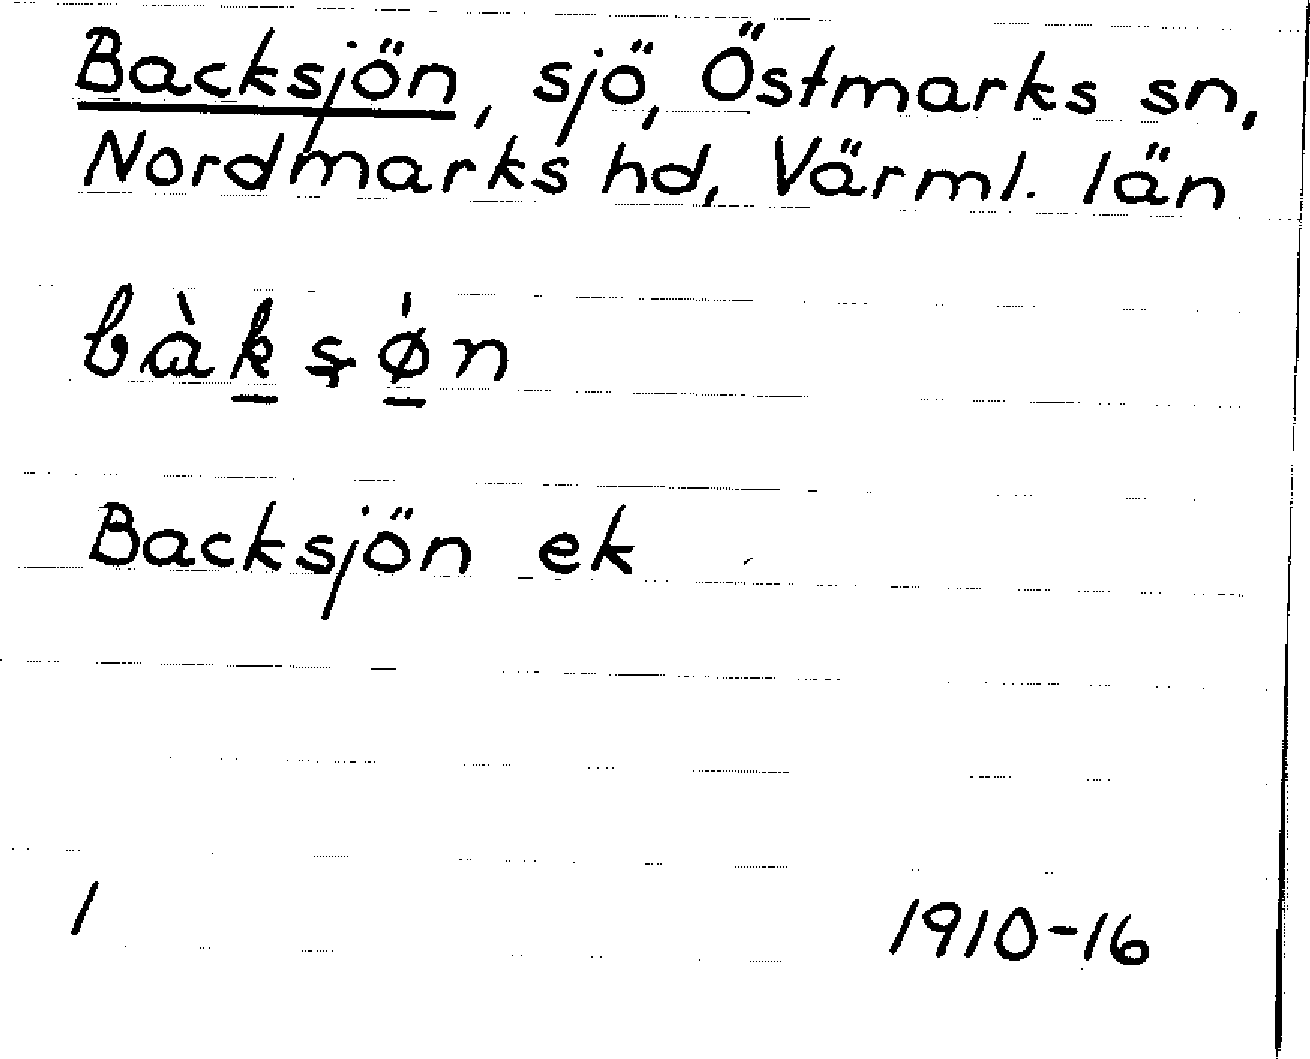 Backsjön, sjö, Östmarks sn,
Nordmarks hd, Värml. län
bàksǿn
Backsjön ek
1 1910-16